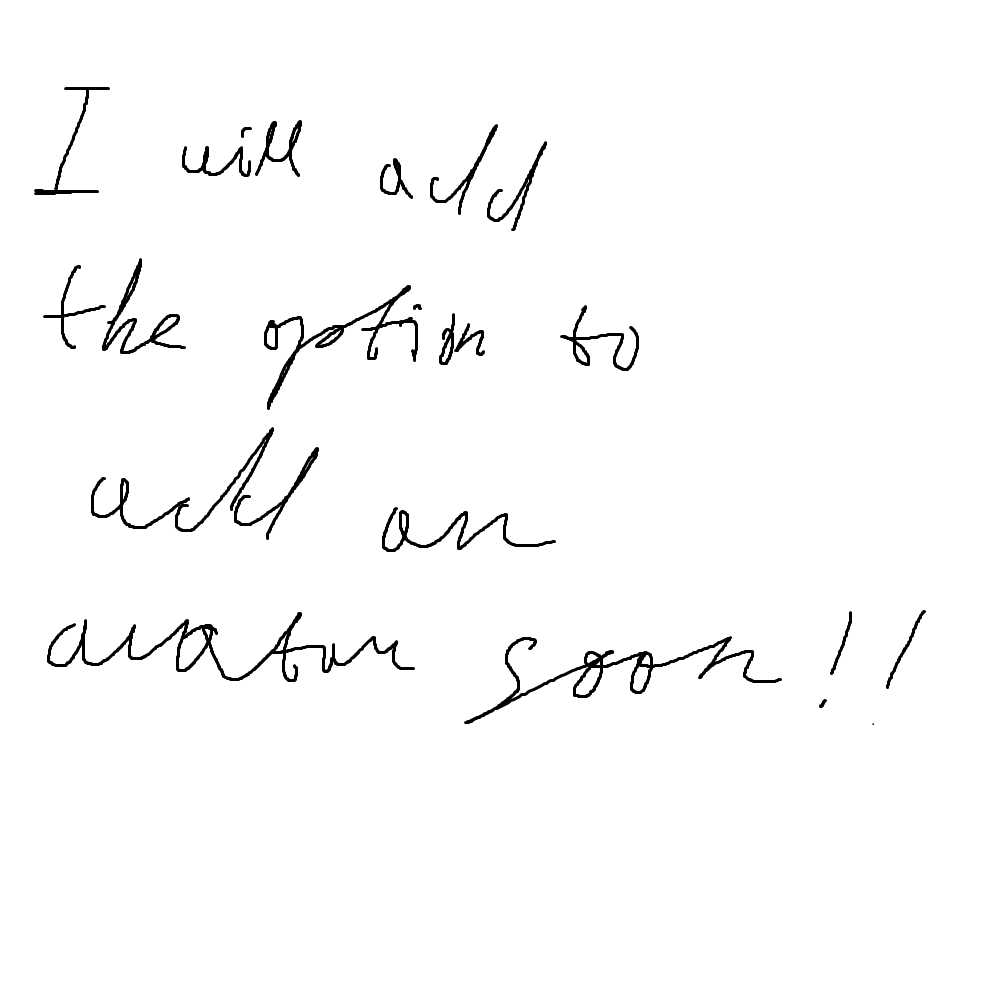 I will add
the option to
add an
avatar soon!!